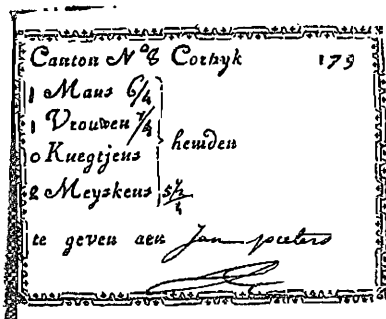 Canton Nº 8 Cortryk 179
1 Mans 6/4
1 Vrouwen 7/4
0 Knegtjens
2 Meyskens 5 1/2/4
hemden
te geven aen Jan pieters